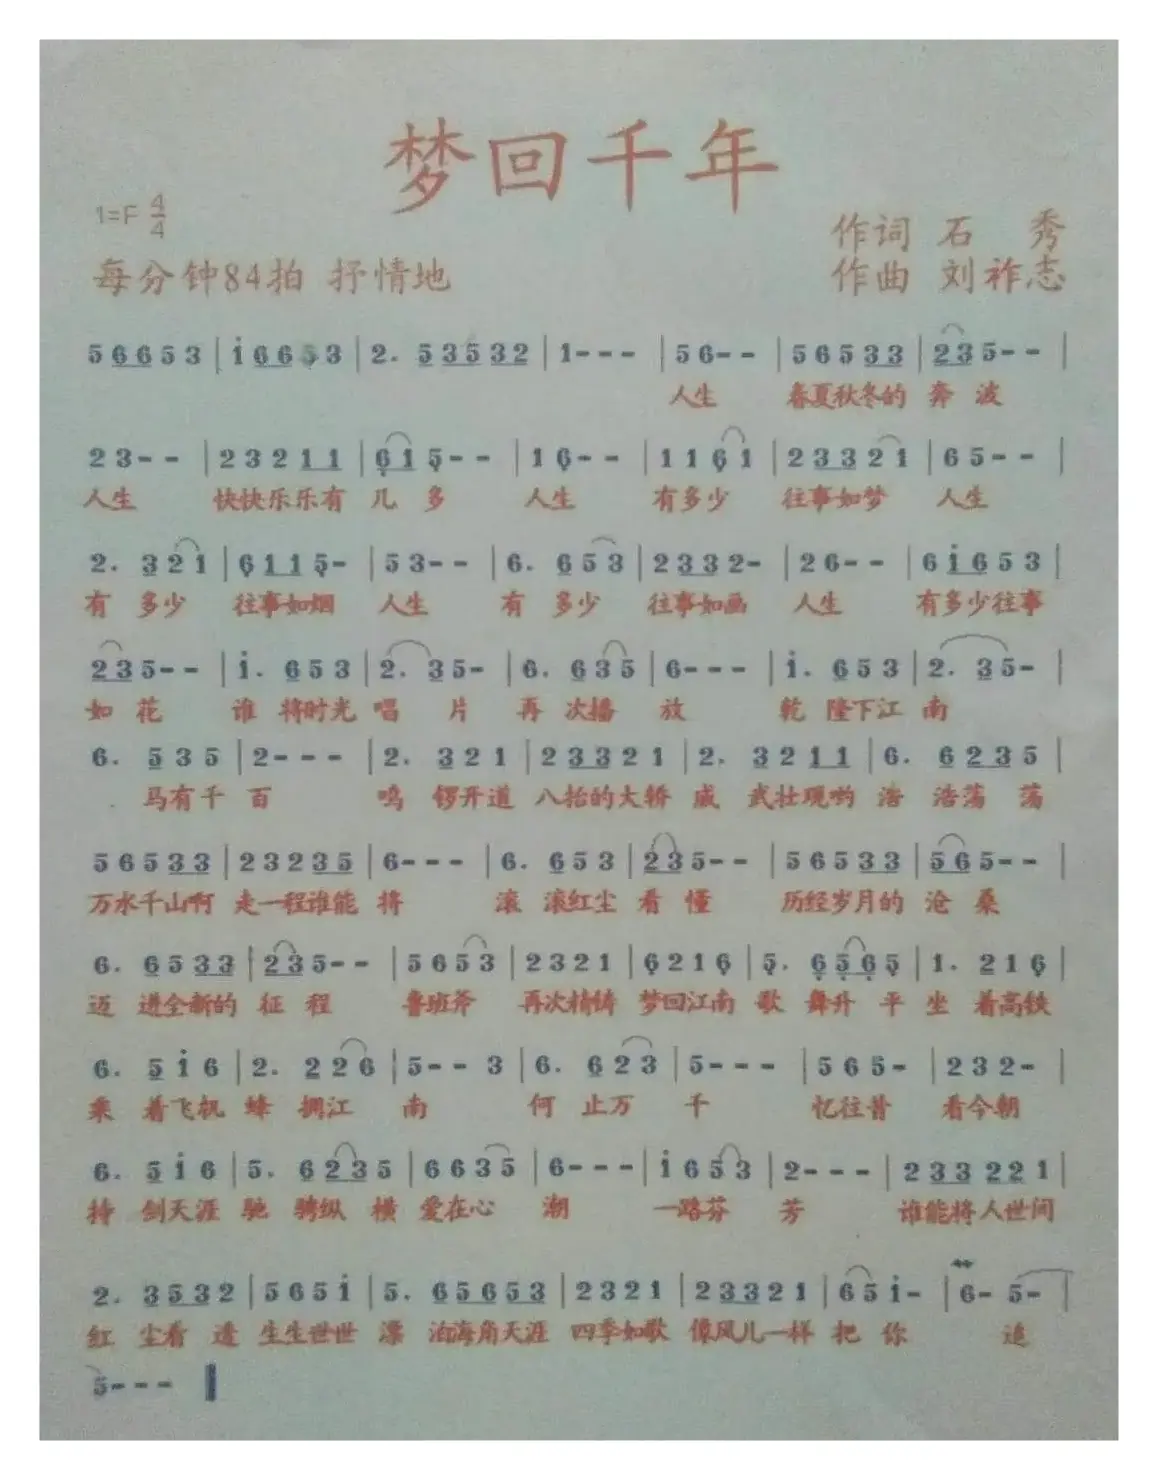 梦回千年
1=F 4/4
作词 石 秀
每分钟84拍 抒情地
作曲 刘祚志
5 6 6 5 3 | i 6 6 5 3 | 2. 5 3 5 3 2 | 1 - - - | 5 6 - - | 5 6 5 3 3 | 2 3 5 - - |
人生 春夏秋冬的 奔 波
2 3 - - | 2 3 2 1 1 | 6 1 5 - - | 1 6 - - | 1 1 6 1 | 2 3 3 2 1 | 6 5 - - |
人生 快快乐乐有 几 多 人生 有多少 往事如梦 人生
2. 3 2 1 | 6 1 1 5 - | 5 3 - - | 6. 6 5 3 | 2 3 3 2 - | 2 6 - - | 6 i 6 5 3 |
有 多少 往事如烟 人生 有 多少 往事如画 人生 有多少往事
2 3 5 - - | i. 6 5 3 | 2. 3 5 - | 6. 6 3 5 | 6 - - - | i. 6 5 3 | 2. 3 5 - |
如 花 谁 将时光 唱 片 再 次播 放 乾 隆下江 南
6. 5 3 5 | 2 - - - | 2. 3 2 1 | 2 3 3 2 1 | 2. 3 2 1 1 | 6. 6 2 3 5 |
马有千 百 鸣 锣开道 八抬的大轿 威 武壮观哟 浩 浩荡 荡
5 6 5 3 3 | 2 3 2 3 5 | 6 - - - | 6. 6 5 3 | 2 3 5 - - | 5 6 5 3 3 | 5 6 5 - - |
万水千山啊 走一程谁能 将 滚 滚红尘 看 懂 历经岁月的 沧 桑
6. 6 5 3 3 | 2 3 5 - - | 5 6 5 3 | 2 3 2 1 | 6 2 1 6 | 5. 6 5 6 5 | 1. 2 1 6 |
迈 进全新的 征 程 鲁班斧 再次精铸 梦回江南 歌 舞升 平 坐 着高铁
6. 5 i 6 | 2. 2 2 6 | 5 - - 3 | 6. 6 2 3 | 5 - - - | 5 6 5 - | 2 3 2 - |
乘 着飞机 蜂 拥江 南 何 止万 千 忆往昔 看今朝
6. 5 i 6 | 5. 6 2 3 5 | 6 6 3 5 | 6 - - - | i 6 5 3 | 2 - - - | 2 3 3 2 2 1 |
持 剑天涯 驰 骋纵 横 爱在心 潮 一路芬 芳 谁能将人世间
2. 3 5 3 2 | 5 6 5 i | 5. 6 5 6 5 3 | 2 3 2 1 | 2 3 3 2 1 | 6 5 i - | 6 - 5 - |
红 尘看 透 生生世世 漂 泊海角天涯 四季如歌 像风儿一样 把 你 追
5 - - -